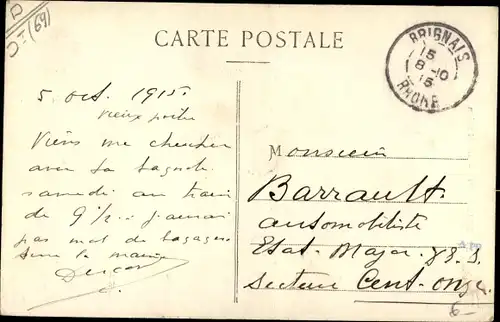 D
(69)
CARTE POSTALE
BRIGNAIS
15
8-10
15
RHONE
5 oct. 1915
Vieux
Viens me chercher
avec la bagnole
samedi au train
de 9 1/2. J'aurai
pas mal de bagages
sous la main
Monsieur
Barrault
automobiliste
Etat-Major
Secteur Cent-onze